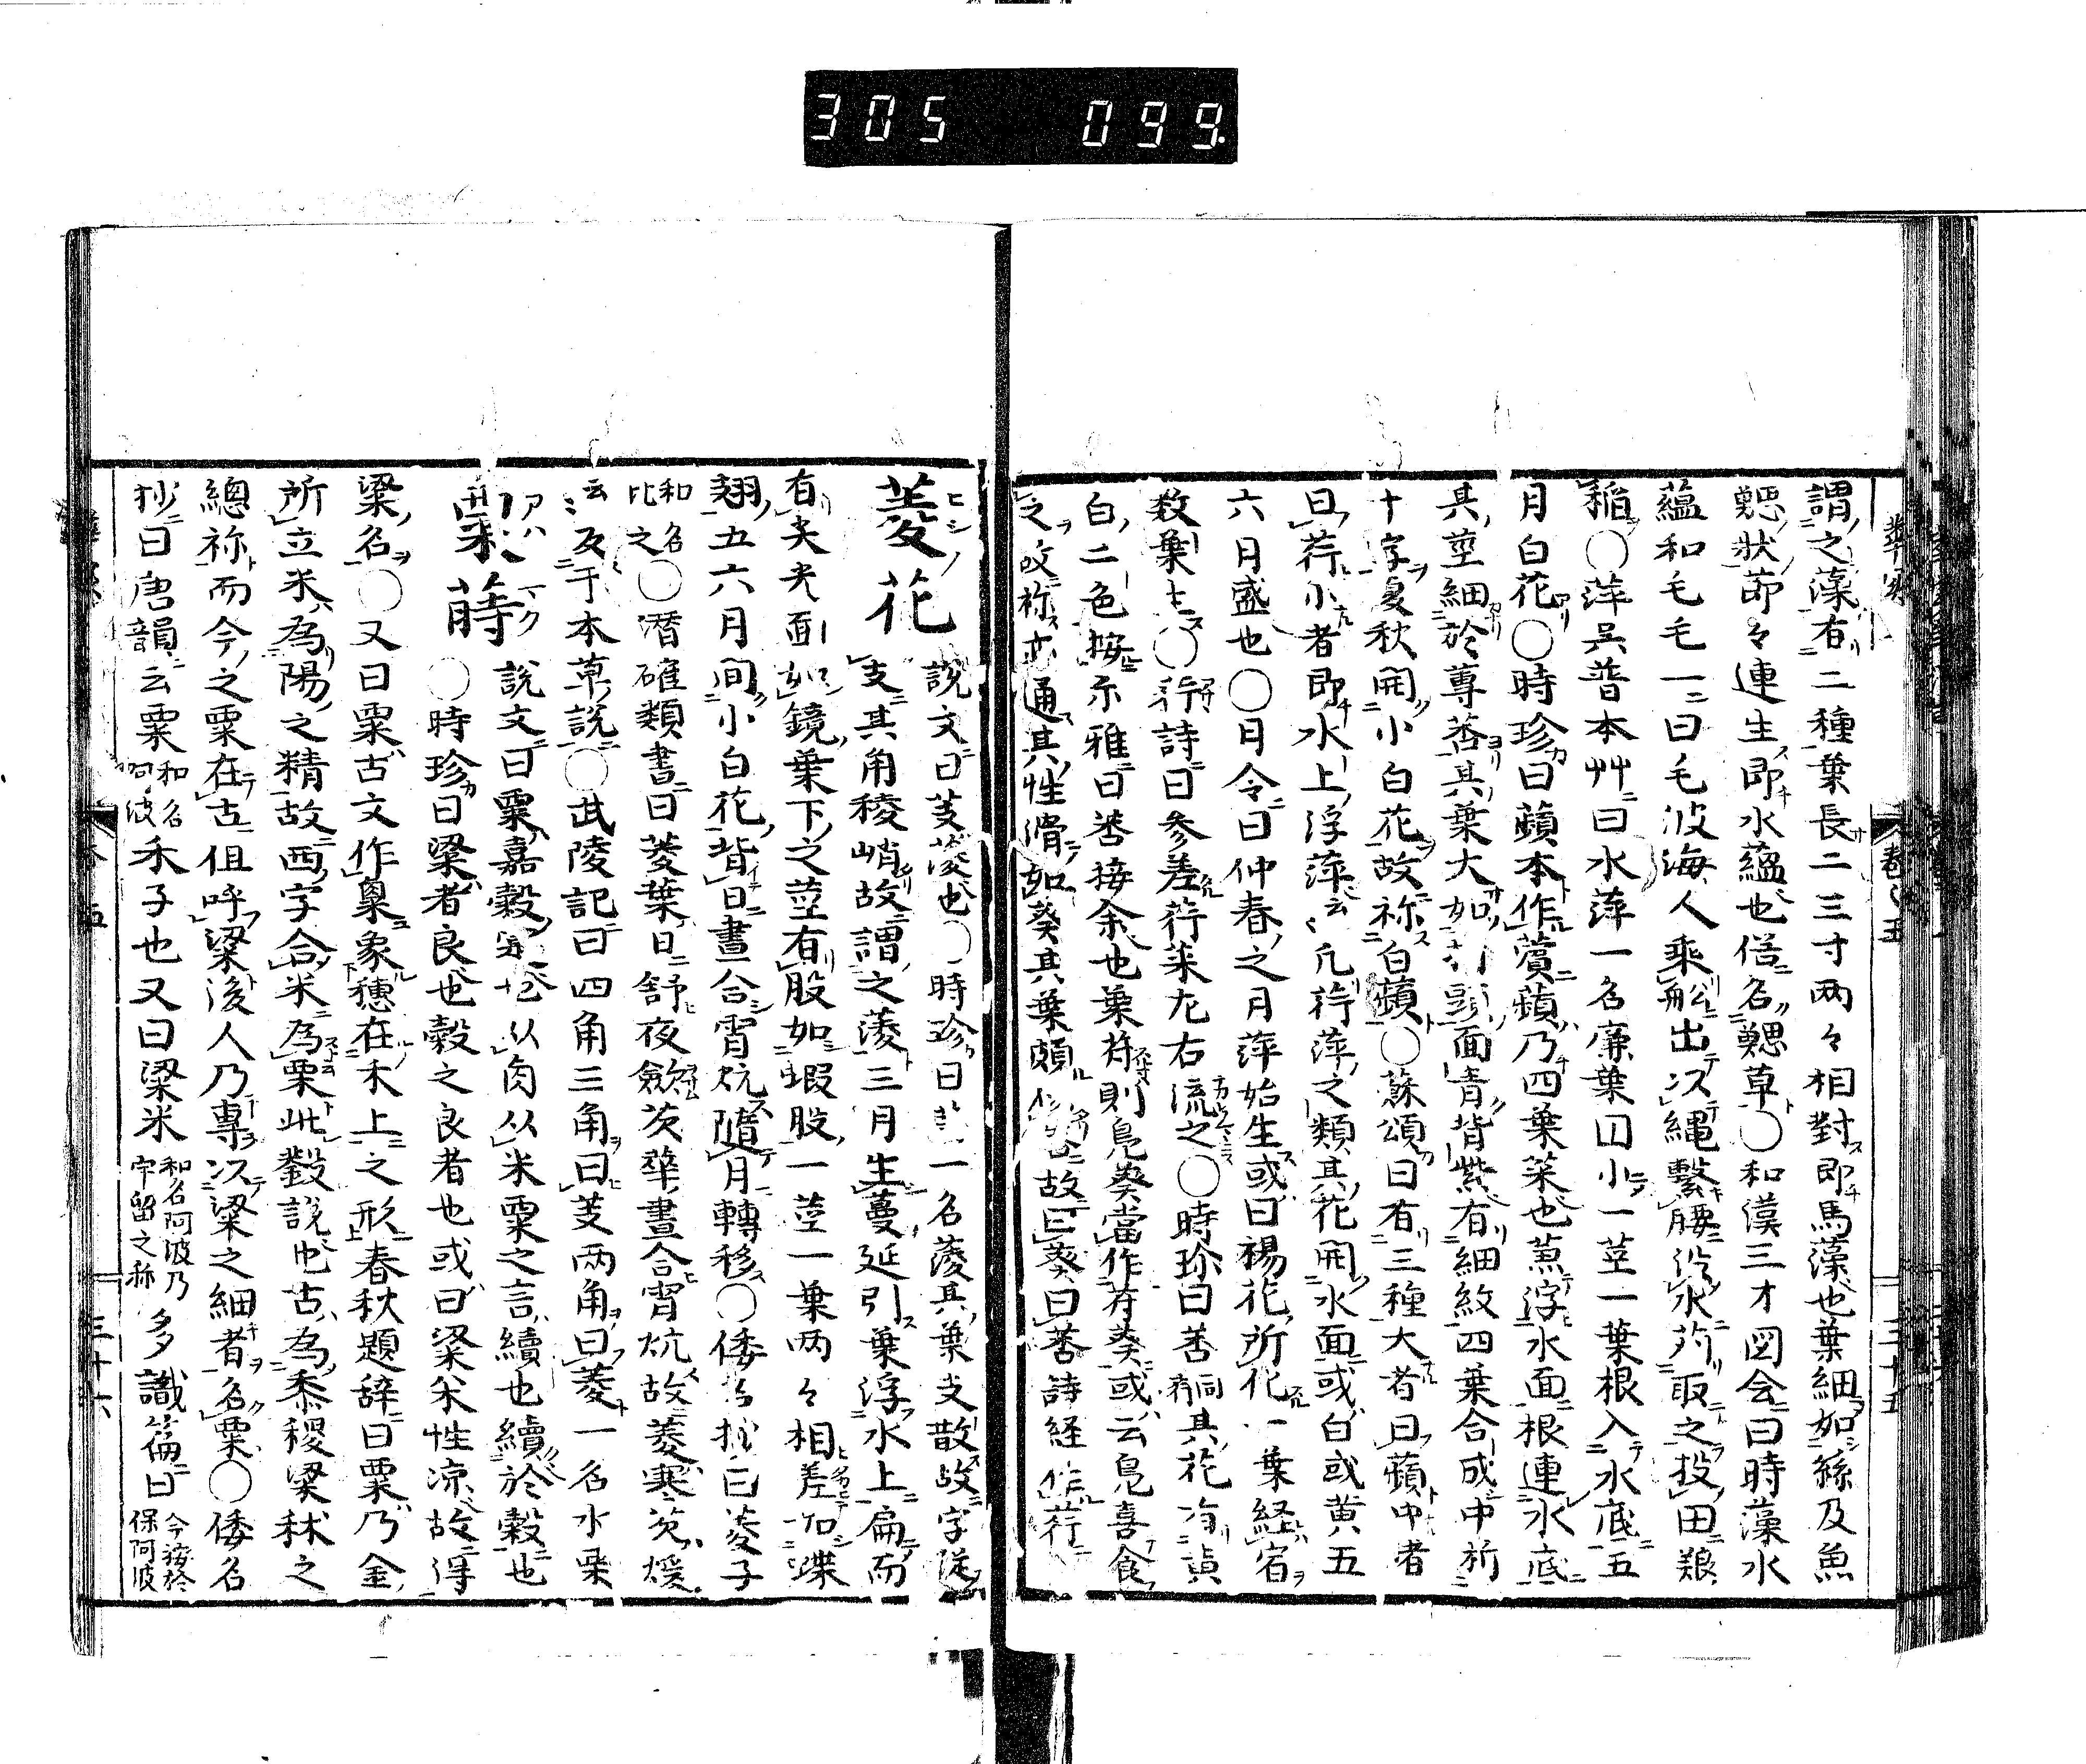 305 099
謂之藻有二種葉長二三寸両々相對即馬藻也葉細如絲及魚
鰓狀節々連生即水薀也俗名鰓草○和漢三才図会曰時藻水
薀和毛毛一曰毛波海人乘舩出以縄繫腰泛水𦭘取之投田粮
稲○萍呉普本艸曰水萍一名廉葉囗小一莖一葉根入水底五
月白花○時珍曰蘋本作薲蘋乃四葉菜也葉浮水面根連水底
其莖細於蓴莕其葉大如指頭面青背紫有細紋四葉合成中折
十字夏秋開小白花故称白蘋○蘇頌曰有三種大者曰蘋中者
曰荇小者即水上浮萍云々凡荇萍之類其花開水面或白或黄五
六月盛也○月令曰仲春之月萍始生或曰楊花所化一葉経宿
数葉ト○荇詩曰參差荇菜左右流之○時珍曰莕同荇其花有黄
白二色按尓雅曰莕接余也葉苻則鳧葵當作苻葵或云鳧喜食
之故称亦通其性滑如葵其葉頗似故曰葵曰莕詩経作荇
菱花 說文曰芰蔆也○時珍曰芰一名蔆其葉支散故字從
支其角稜峭故謂之蔆三月生蔓延引葉浮水上扁而
有尖光面如鏡葉下之莖有股如蝦股一莖一葉両々相差如蝶
翅五六月間小白花背日晝合宵炕隨月轉移○倭名抄曰菱子
和名比之○潜確類書曰菱葉日舒夜歛芡華晝合宵炕故菱寒芡煖
云々反于本草說○武陵記曰四角三角曰芰両角曰菱一名水栗
粟蒔 說文曰粟嘉穀實也从卥从米粟之言續也續於穀也
○時珍曰粱者良也穀之良者也或曰粱米性凉故得
粱名○又曰粟古文作㮚象穗在禾上之形春秋題辞曰粟乃金
所立米為陽之精故西字合米為粟此鑿說也古為黍稷粱秫之
總称而今之粟在古但呼粱後人乃專以粱之細者名粟○倭名
抄曰唐韻云粟和名阿波禾子也又曰粱米和名阿波乃宇留之称多識篇曰今按於保阿波
巻之五
三十五
三十六